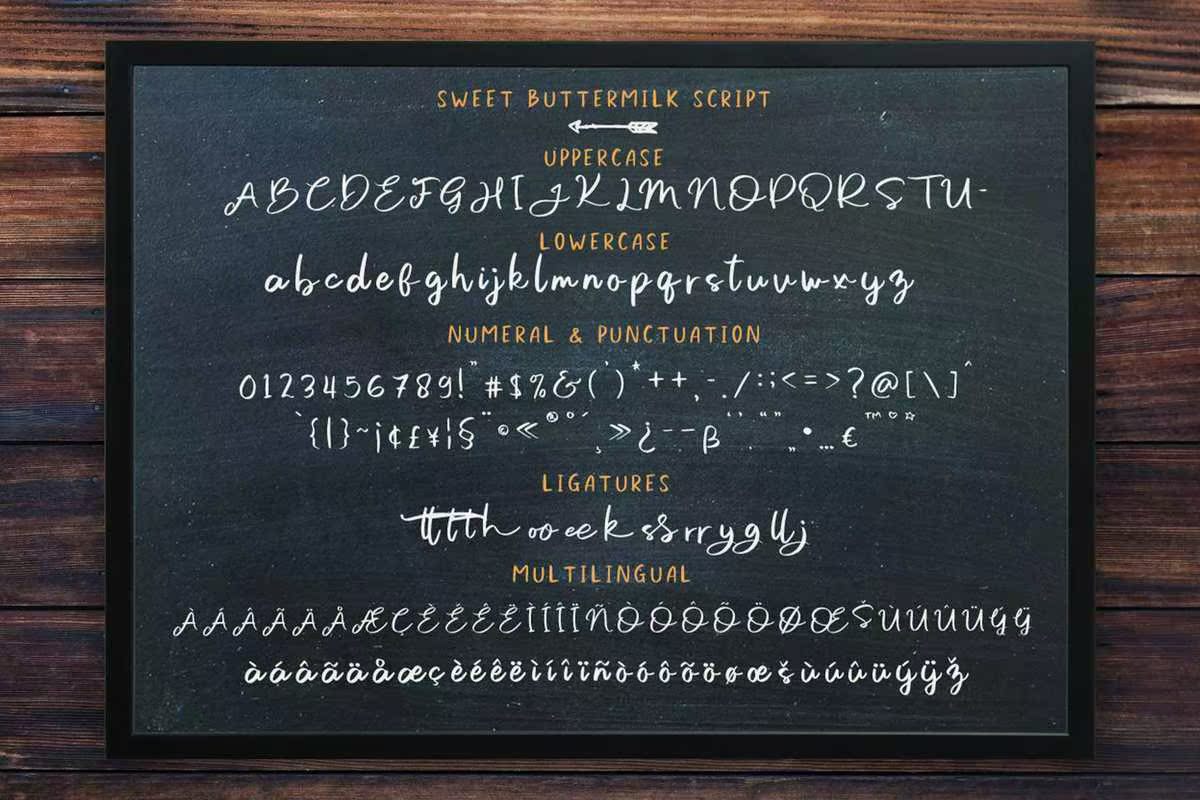 SWEET BUTTERMILK SCRIPT
UPPERCASE
ABCDEFGHIJKLMNOPQRSTU-
LOWERCASE
abcdefghijklmnopqrstuvwxyz
NUMERAL & PUNCTUATION
0123456789!"#$%&(')*++,-./:;<=>?@[\]^
`{|}~¡¢£¥¦§¨©≪®°´¸≫¿--β‘.’“„”•…€™♡☆
LIGATURES
tttth oo ee k ss rr y g ll j
MULTILINGUAL
ÀÁÂÃÄÅÆÇÈÉÊËÌÍÎÏÑÒÓÔÕÖØŒŠÙÚÛÜÝŸ
àáâãäåæçèéêëìíîïñòóôõöøœšùúûüýÿž